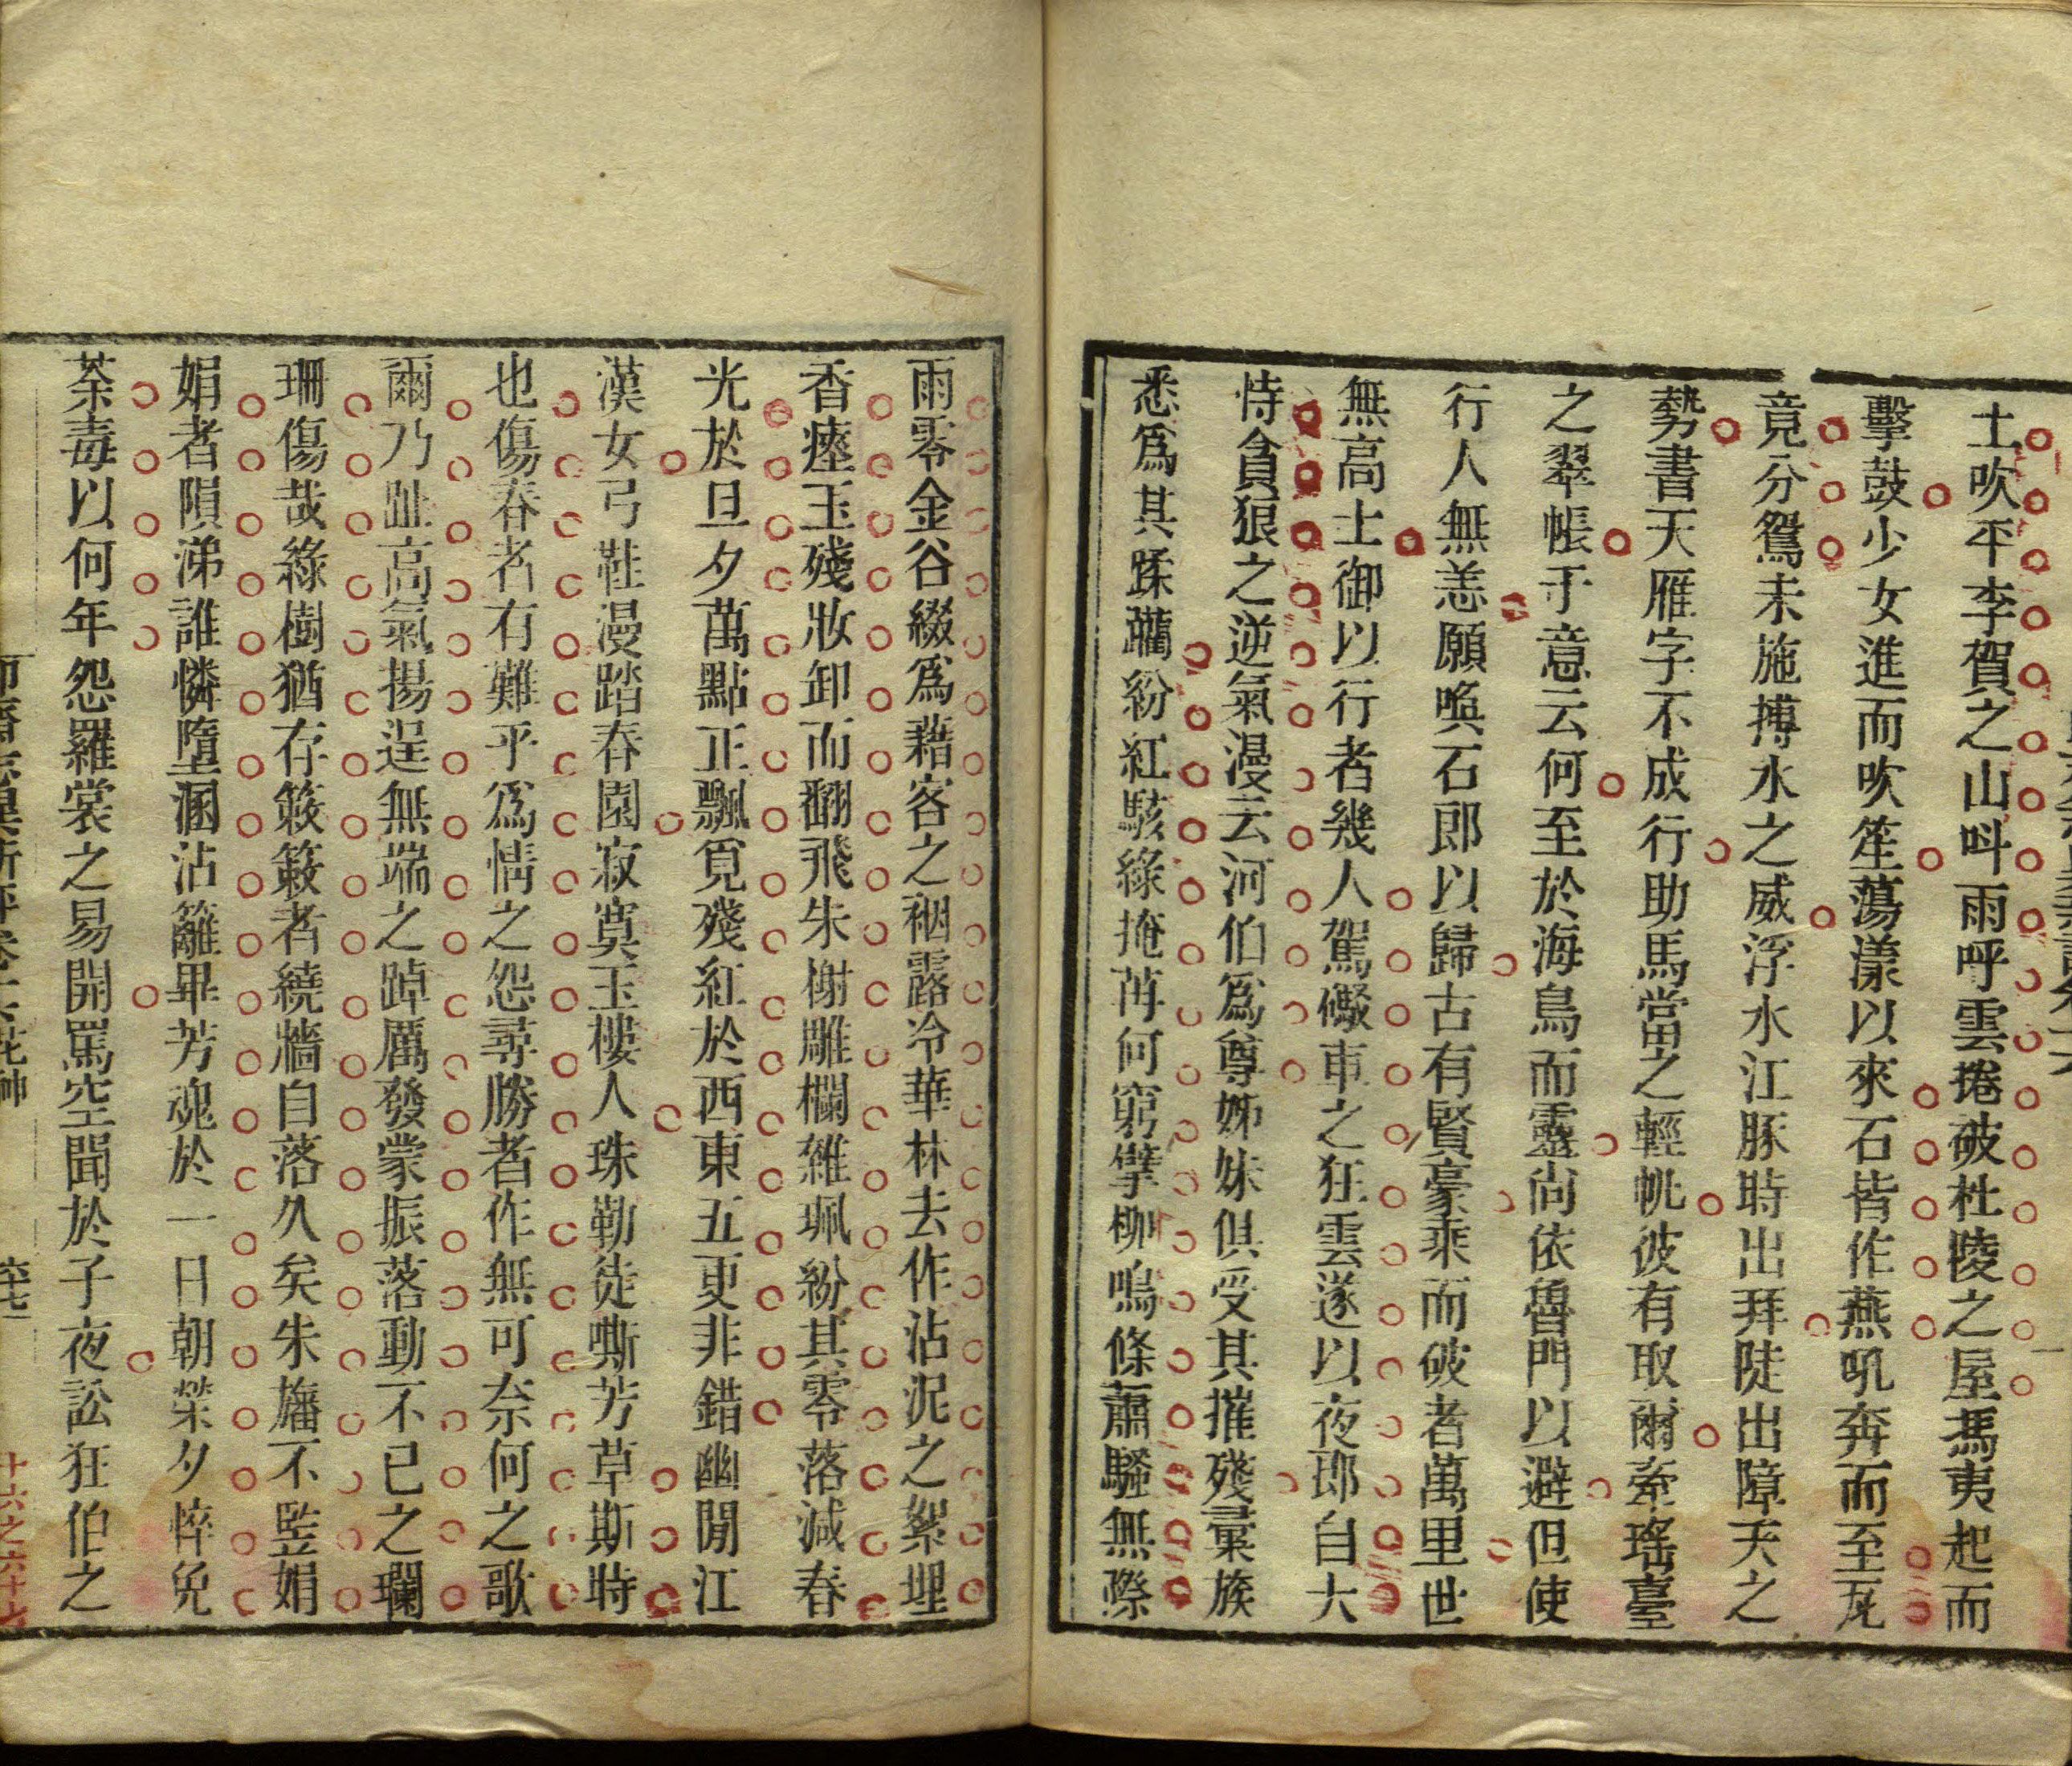 土吹平李賀之山呌雨呼雲捲破杜陵之屋馮夷起而
擊鼓少女進而吹笙蕩漾以來石皆作燕吼奔而至瓦
竟分鴛未施搏水之威浮水江豚時出拜陡出障天之
勢書天雁字不成行助馬當之輕帆彼有取爾牽瑤臺
之翠帳于意云何至於海鳥而靈尚依魯門以避但使
行人無恙願喚石郎以歸古有賢豪乘而破者萬里世
無高士御以行者幾人駕礟車之狂雲遂以夜郎自大
恃貪狠之逆氣漫云河伯為尊姊妹俱受其摧殘彙族
悉爲其蹂躪紛紅駭綠掩苒何窮擘柳鳴條蕭騷無際
雨零金谷綴爲藉客之裀露冷華林去作沾泥之絮埋
香瘞玉殘妝卸而翻飛朱榭雕欄雜珮紛其零落減春
光於旦夕萬點正飄覓殘紅於西東五更非錯幽閒江
漢女弓鞋漫踏春園寂寞玉樓人珠勒徒嘶芳草斯時
也傷春者有難乎爲情之怨尋勝者作無可奈何之歌
爾乃趾高氣揚逞無端之踔厲發蒙振落動不已之瓓
珊傷哉綠樹猶存簌簌者繞牆自落久矣朱旛不竪娟
娟者隕涕誰憐墮溷沾籬畢芳魂於一日朝榮夕悴免
荼毒以何年怨羅裳之易開罵空聞於子夜訟狂伯之
十六之六十七